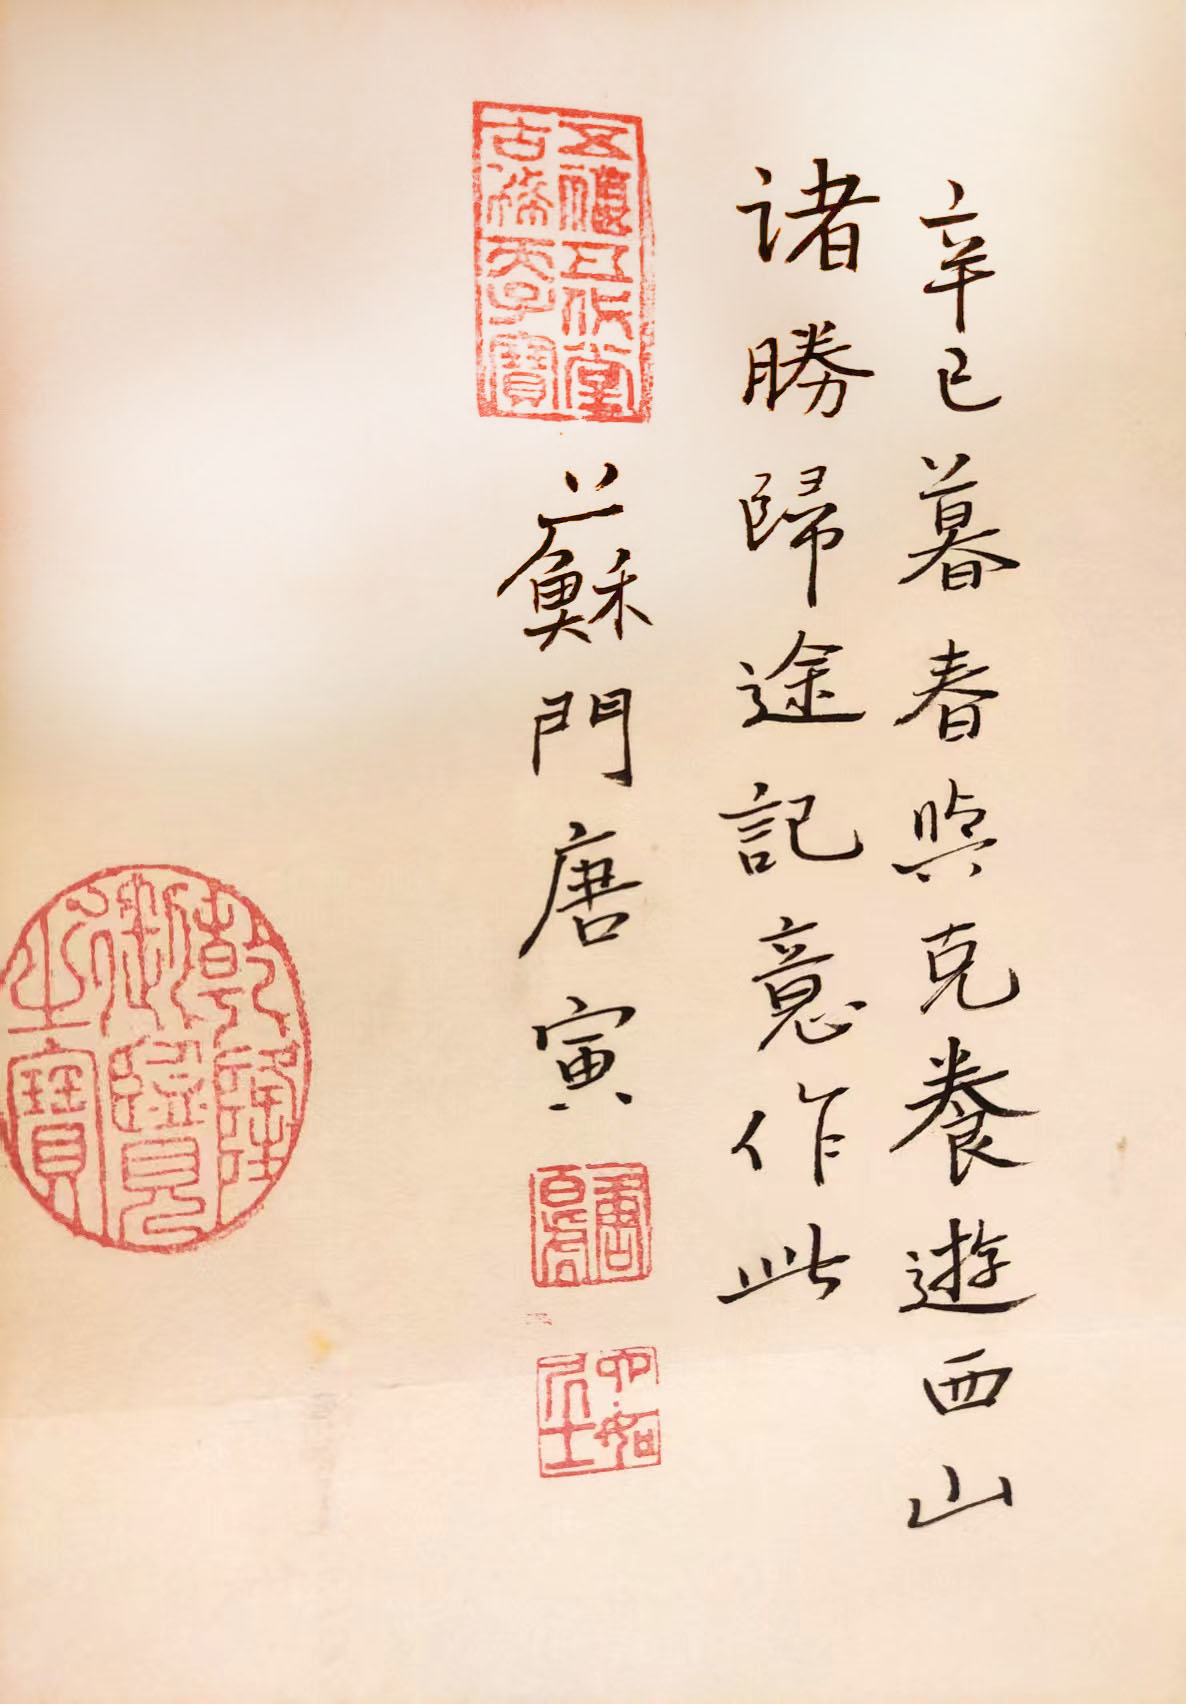 辛巳暮春與克養遊西山
諸勝歸途記意作此
蘇門唐寅
五福五代堂
古稀天子寶
唐
百勞
六如
居士
乾隆
御覽
之寶